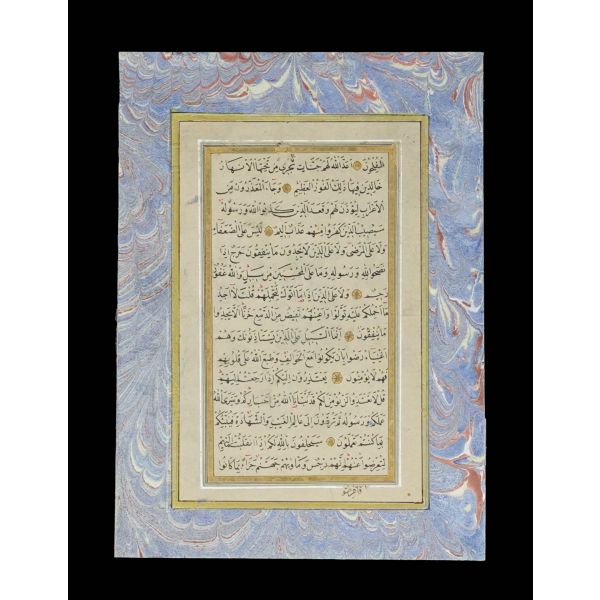 المفلحون اعد الله لهم جنات تجري من تحتها الانهار
خالدين فيها ذلك الفوز العظيم وجاء المعذرون من
الاعراب ليؤذن لهم وقعد الذين كذبوا الله ورسوله
سيصيب الذين كفروا منهم عذاب اليم ليس على الضعفاء
ولا على المرضى ولا على الذين لا يجدون ما ينفقون حرج اذا
نصحوا لله ورسوله وما على المحسنين من سبيل والله غفور
رحيم ولا على الذين اذا ما اتوك لتحملهم قلت لا اجد
ما احملكم عليه تولوا واعينهم تفيض من الدمع حزنا الا يجدوا
ما ينفقون انما السبيل على الذين يستاذنونك وهم
اغنياء رضوا بان يكونوا مع الخوالف وطبع الله على قلوبهم
فهم لا يعتذرون اليكم اذا رجعتم اليهم
قل لا تعتذروا لن نؤمن لكم قد نبانا الله من اخباركم وسيرى الله
عملكم ورسوله ثم تردون الى عالم الغيب والشهادة فينبئكم
بما كنتم تعملون سيحلفون بالله لكم اذا انقلبتم اليهم
لتعرضوا عنهم انهم رجس وماويهم جهنم جزاء بما كانوا